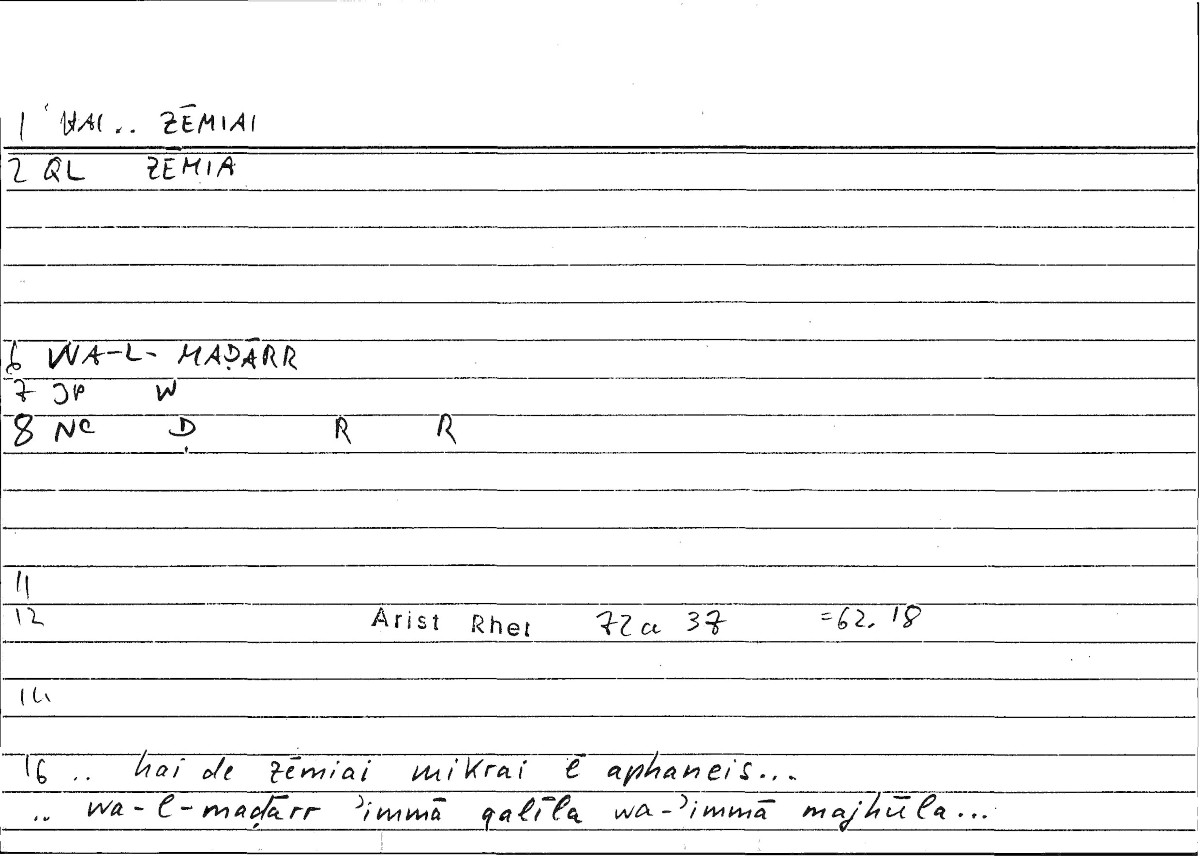 1 HAI .. ZĒMIAI
2 QL ZĒMIA
6 WA-L-MAḌĀRR
7 JP W
8 NC Ḍ R R
11
12 Arist Rhet 72a 37 =62.18
14
16 .. hai de zēmiai mikrai ē aphaneis...
.. wa-l-maḍārr ʾimmā qalīla wa-ʾimmā majhūla...